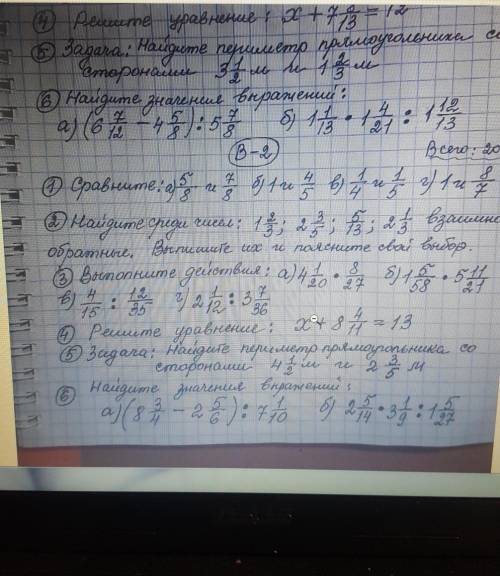 ④ Решите уравнение: x + 7 /13 = 12
⑤ Задача: Найдите периметр прямоугольника со
сторонами 3 1/2 м и 1 2/3 м
⑥ Найдите значения выражений:
а) (6 7/12 - 4 5/8) : 5 7/8 б) 1 1/13 · 1 4/21 : 1 12/13
В-2 Всего: 20
① Сравните: а) 5/8 и 7/8 б) 1 и 4/5 в) 1/4 и 1/5 г) 1 и 8/7
② Найдите среди чисел: 1 2/3; 2 3/5; 5/13; 2 1/3 взаимно
обратные. Выпишите их и поясните свой выбор.
③ Выполните действия: а) 4 1/20 · 8/27 б) 1 5/58 · 5 11/21
в) 4/15 : 12/35 г) 2 1/12 : 3 7/36
④ Решите уравнение: x + 8 4/11 = 13
⑤ Задача: Найдите периметр прямоугольника со
сторонами 4 1/2 м и 2 3/5 м
⑥ Найдите значения выражений:
а) (8 3/4 - 2 5/6) : 7 1/10 б) 2 5/14 · 3 1/9 : 1 5/27